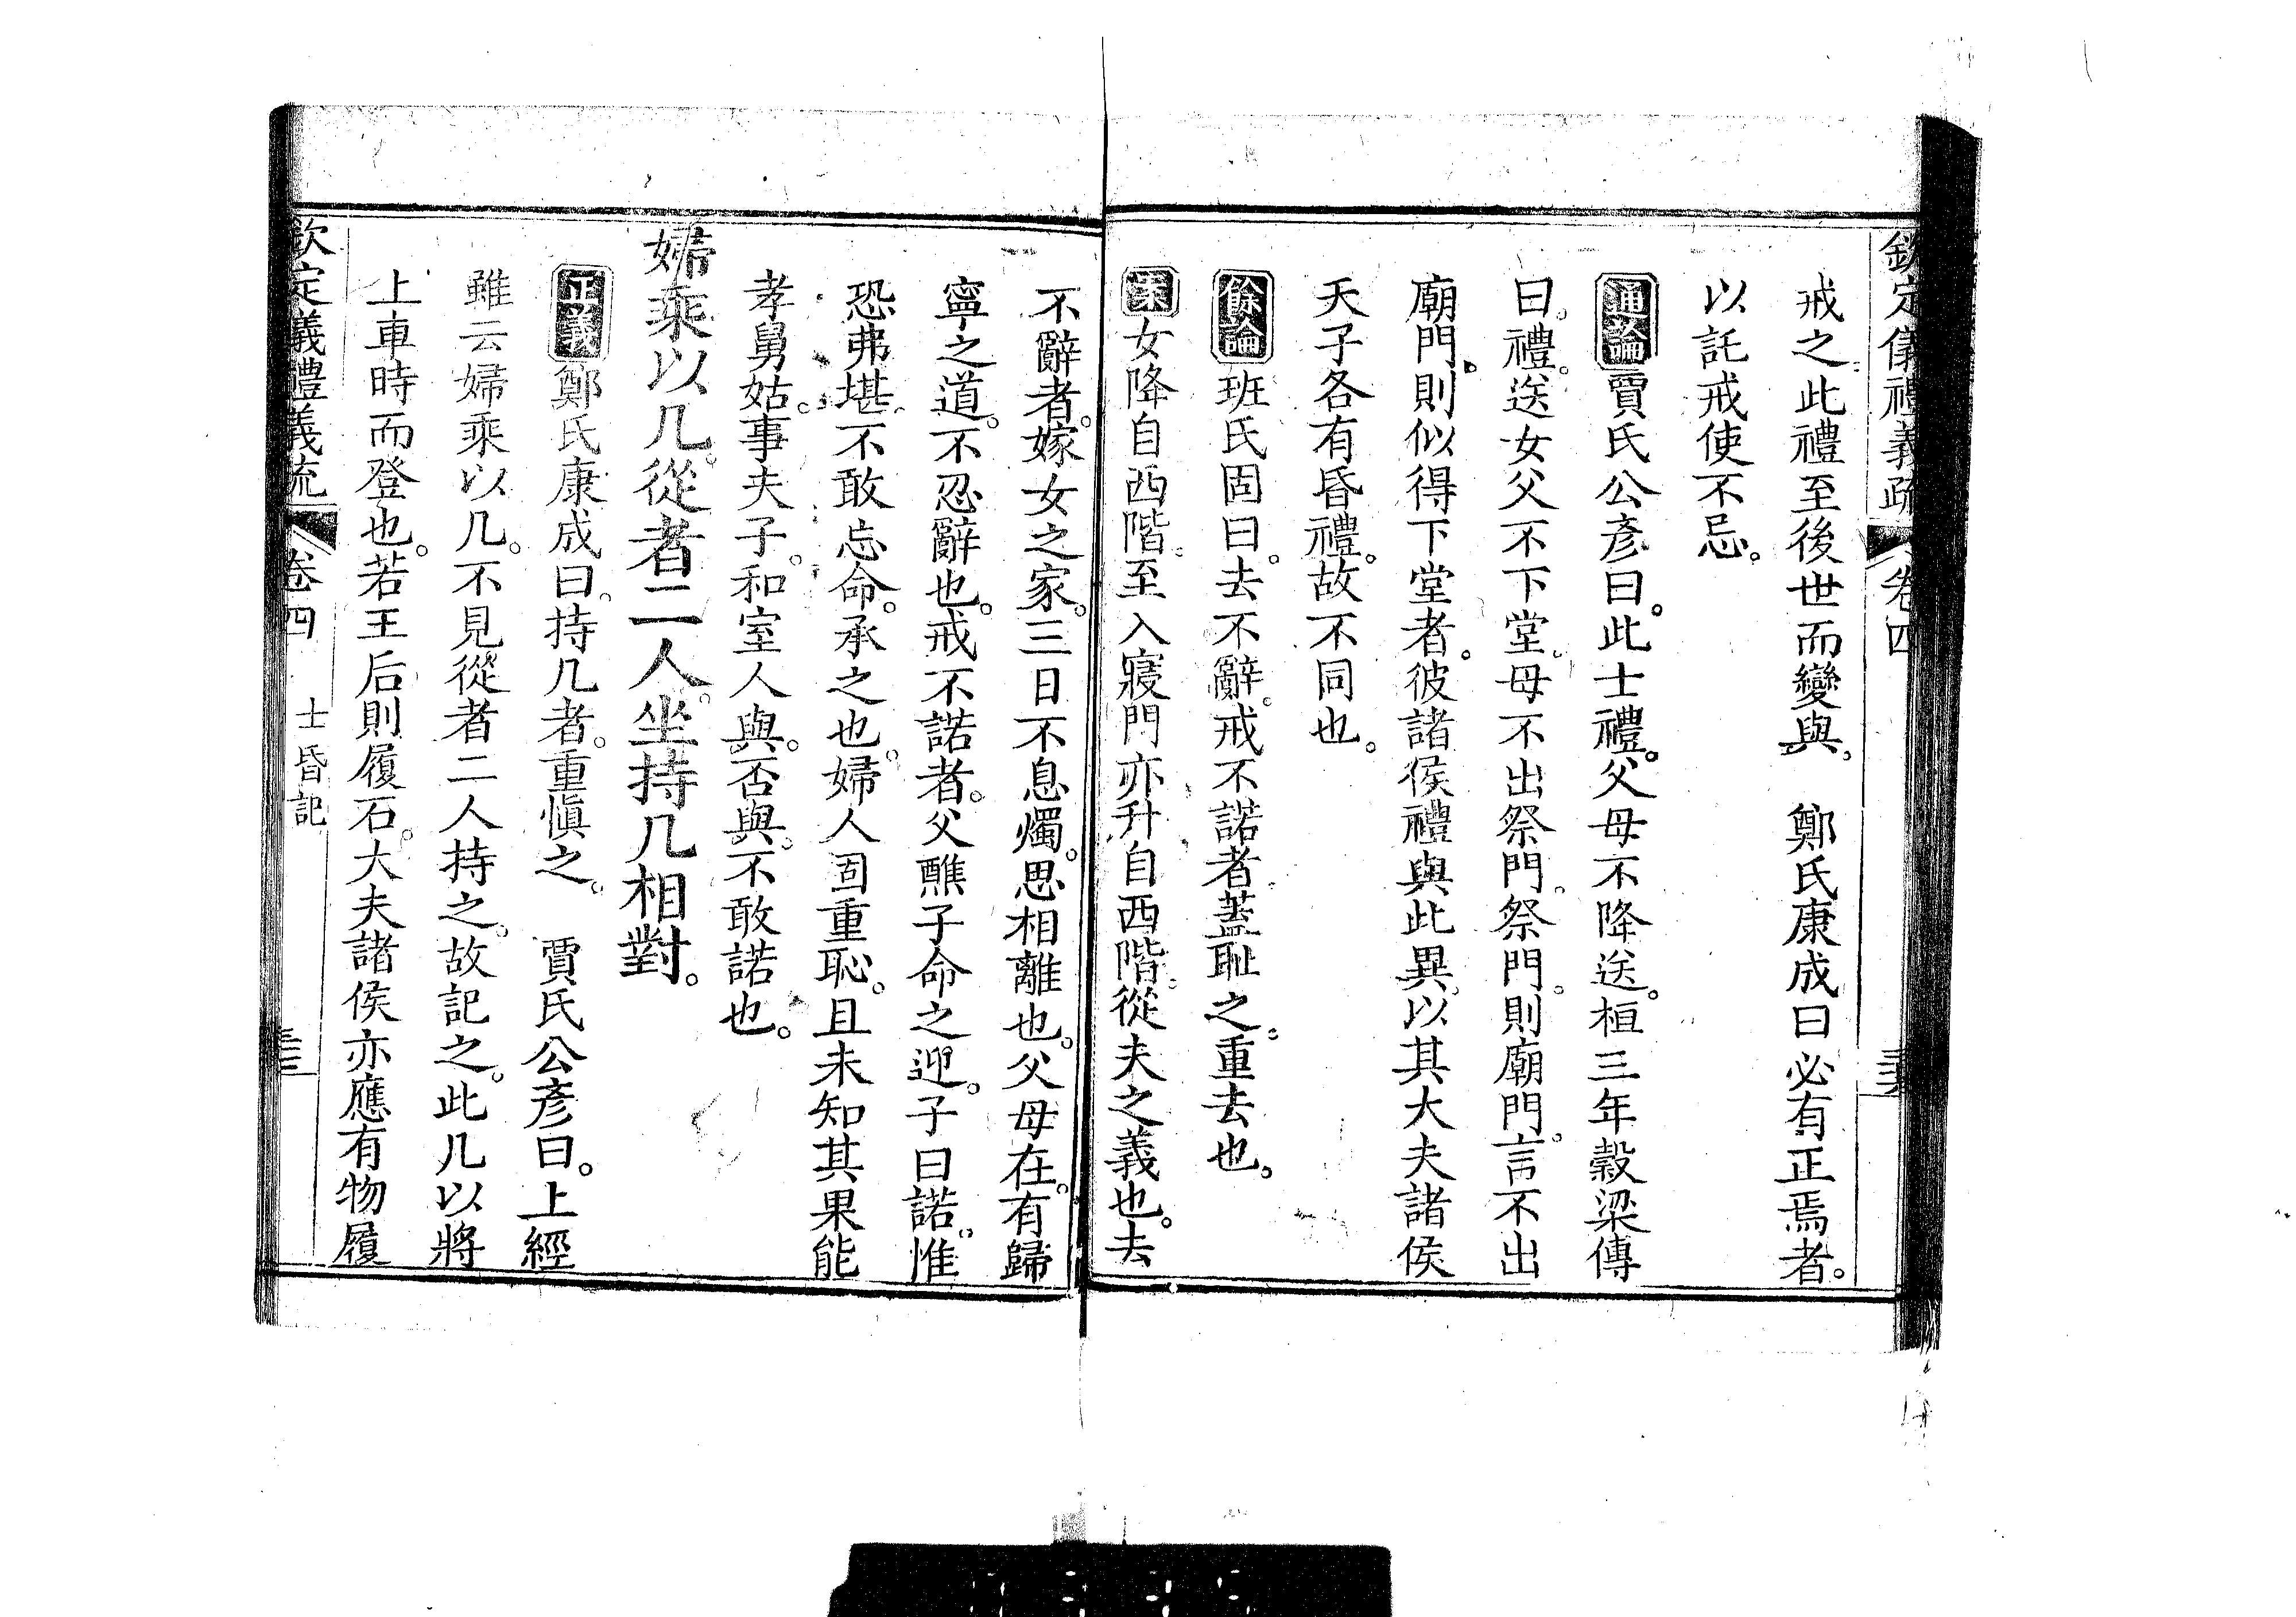 欽定儀禮義疏 卷四
戒之此禮至後世而變與。 鄭氏康成曰必有正焉者。
以託戒使不忘。
通論賈氏公彥曰。此士禮。父母不降送。桓三年穀梁傳
曰。禮。送女父不下堂。母不出祭門。祭門。則廟門。言不出
廟門。則似得下堂者。彼諸侯禮與此異。以其大夫諸侯
天子各有昏禮。故不同也。
餘論班氏固曰。去不辭。戒不諾者。蓋恥之。重去也。
案女降自西階。至入寢門亦升自西階。從夫之義也。去
不辭者。嫁女之家。三日不息燭。思相離也。父母在。有歸
寧之道。不忍辭也。戒不諾者。父醮子命之迎。子曰諾。惟
恐弗堪。不敢忘命。承之也。婦人固重恥。且未知其果能
孝舅姑。事夫子。和室人與。否與。不敢諾也。
婦乘以几。從者二人。坐持几相對。
正義鄭氏康成曰。持几者。重慎之。 賈氏公彥曰。上經
雖云婦乘以几。不見從者二人持之。故記之。此几以將
上車時而登也。若王后則履石。大夫諸侯亦應有物履
欽定儀禮義疏 卷四 士昏記